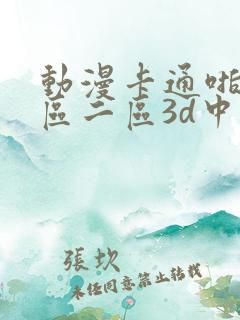 動漫卡通啪
區二區3d中
張坎
未任同意禁止轉載